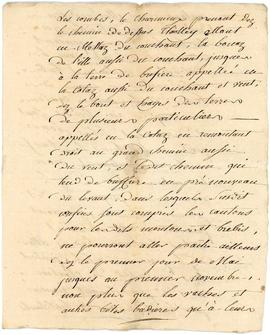 Les combes, le charmieux prenant dez
le chemin de depas Thollex allant
en Mollaz du couchant, la
de l'ille aussi du couchant, jusques
à la terre de bussiere appellée en
la Cotaz aussi du couchant et vent
dez le bout et hayes des terres
de plusieurs particuliers
appellés en la Cotaz en remontant
droit au grand chemin aussi
du vent, et le chemin qui
tend de buffiere en pré nouveau
du levant, dans lesquels susdit
confins sont compris les cantons
pour lesdits moutons et brebis,
ne pourront aller paitre ailleurs
dez le premier jour de Mai
jusques au premier novembre,
non plus que les vaches et
autres bêtes à leur